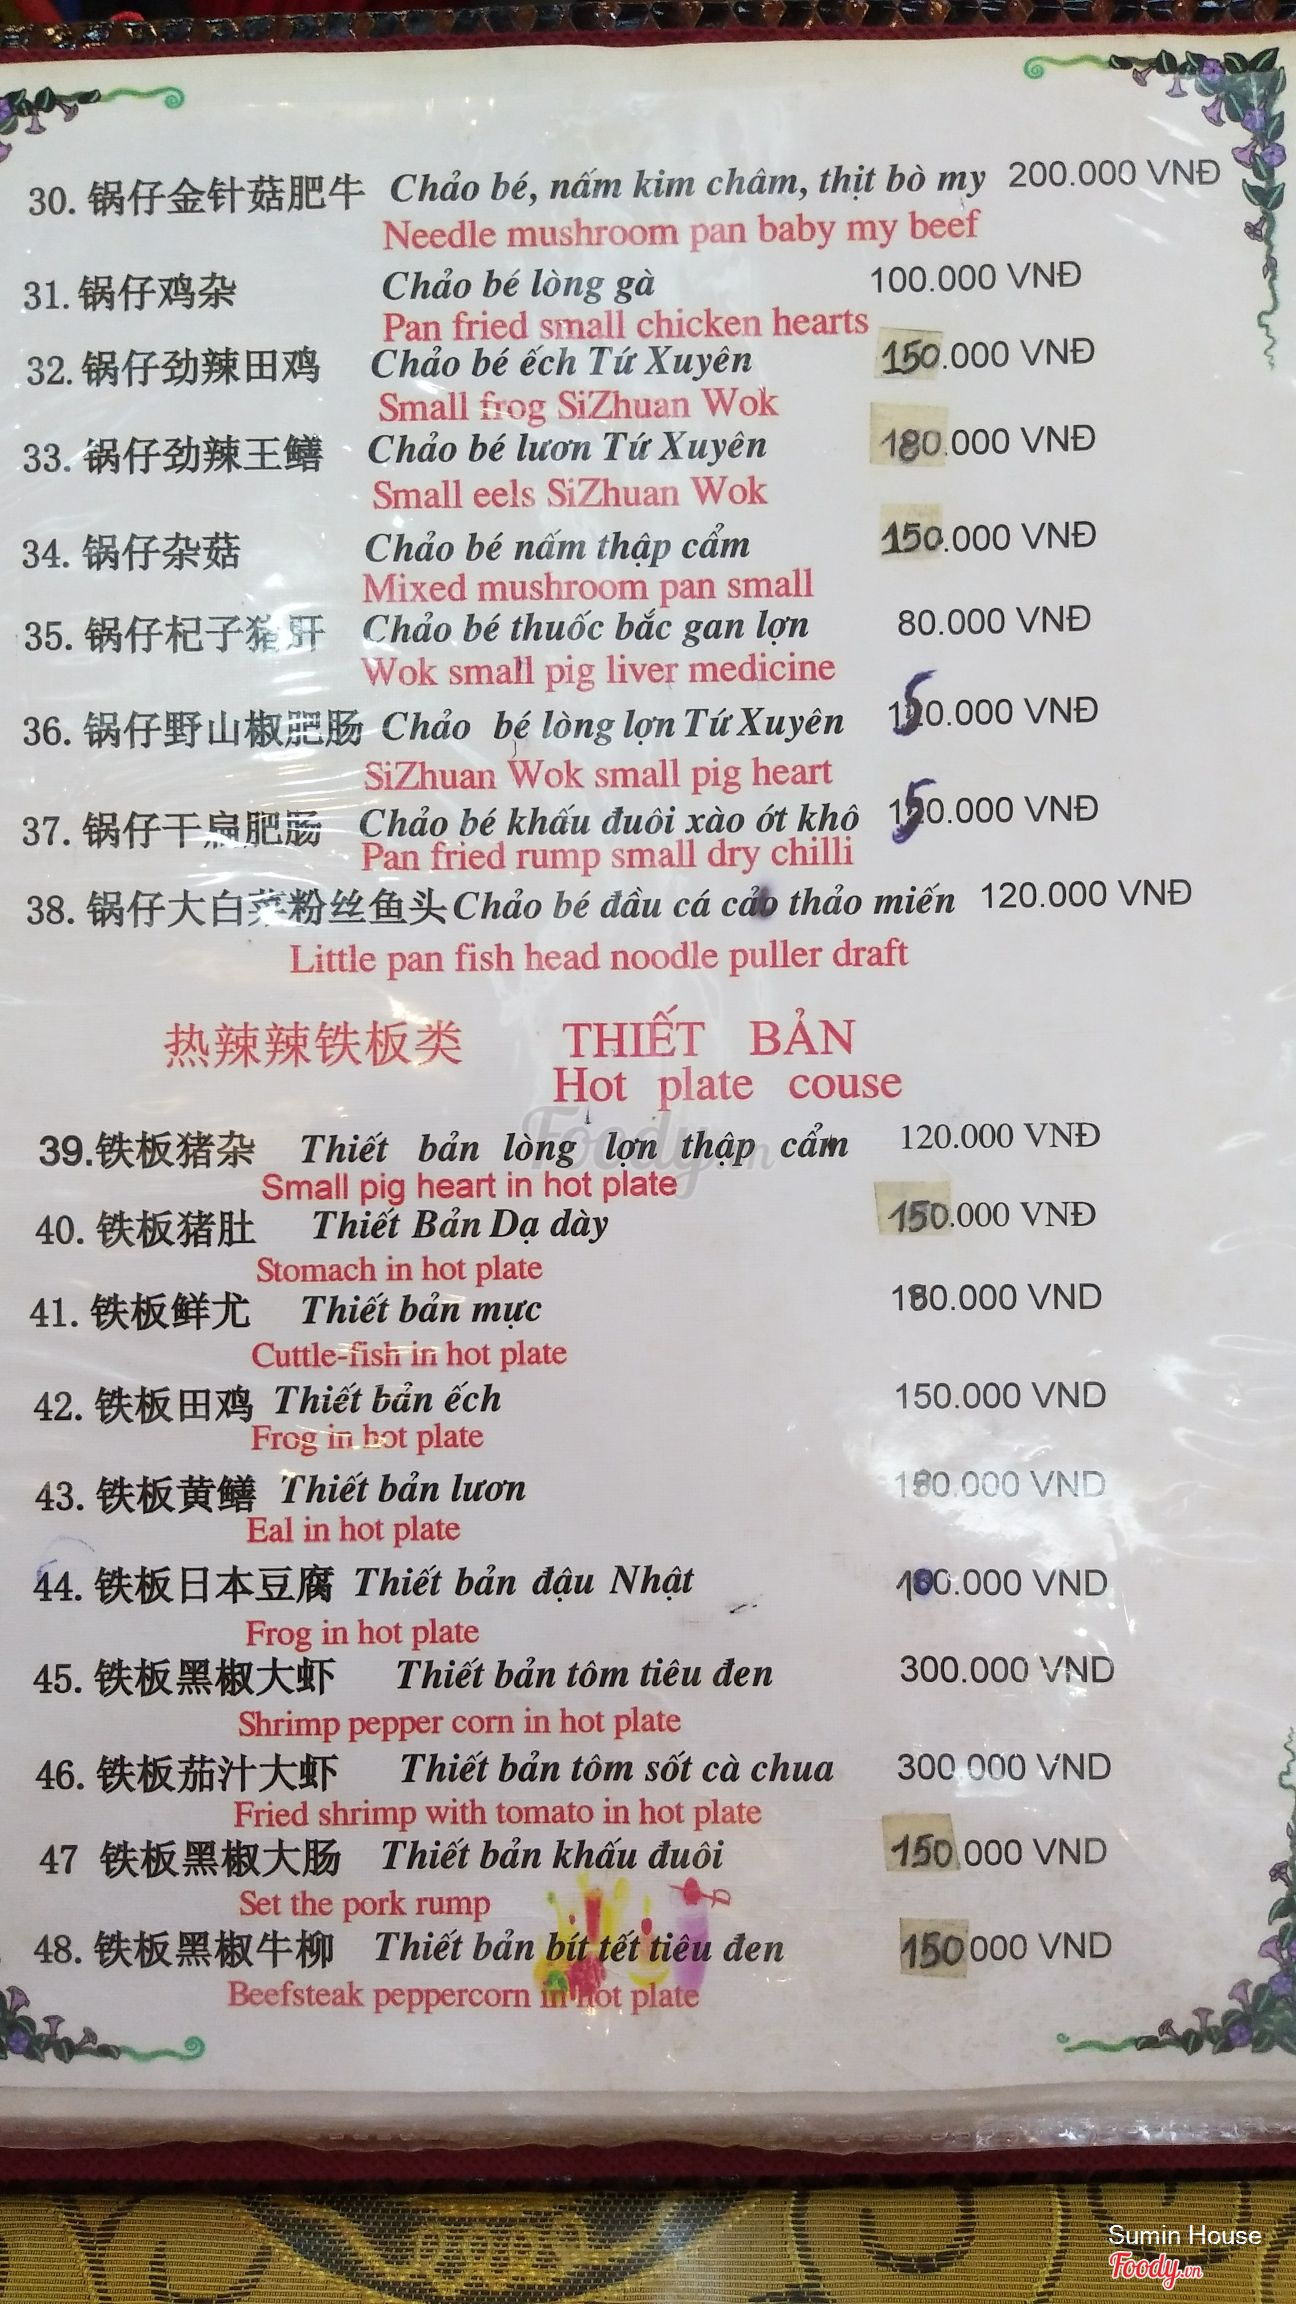 30. 锅仔金针菇肥牛 Chảo bé, nấm kim châm, thịt bò my 200.000 VNĐ
Needle mushroom pan baby my beef
31. 锅仔鸡杂 Chảo bé lòng gà 100.000 VNĐ
Pan fried small chicken hearts
32. 锅仔劲辣田鸡 Chảo bé ếch Tứ Xuyên 150.000 VNĐ
Small frog SiZhuan Wok
33. 锅仔劲辣王鳝 Chảo bé lươn Tứ Xuyên 180.000 VNĐ
Small eels SiZhuan Wok
34. 锅仔杂菇 Chảo bé nấm thập cẩm 150.000 VNĐ
Mixed mushroom pan small
35. 锅仔杞子猪肝 Chảo bé thuốc bắc gan lợn 80.000 VNĐ
Wok small pig liver medicine
36. 锅仔野山椒肥肠 Chảo bé lòng lợn Tứ Xuyên 150.000 VNĐ
SiZhuan Wok small pig heart
37. 锅仔干扁肥肠 Chảo bé khấu đuôi xào ớt khô 150.000 VNĐ
Pan fried rump small dry chilli
38. 锅仔大白菜粉丝鱼头 Chảo bé đầu cá cảo thảo miến 120.000 VNĐ
Little pan fish head noodle puller draft
热辣辣铁板类 THIẾT BẢN
Hot plate couse
39. 铁板猪杂 Thiết bản lòng lợn thập cẩm 120.000 VNĐ
Small pig heart in hot plate
40. 铁板猪肚 Thiết Bản Dạ dày 150.000 VNĐ
Stomach in hot plate
41. 铁板鲜尤 Thiết bản mực 180.000 VND
Cuttle-fish in hot plate
42. 铁板田鸡 Thiết bản ếch 150.000 VND
Frog in hot plate
43. 铁板黄鳝 Thiết bản lươn 180.000 VND
Eal in hot plate
44. 铁板日本豆腐 Thiết bản đậu Nhật 100.000 VND
Frog in hot plate
45. 铁板黑椒大虾 Thiết bản tôm tiêu đen 300.000 VND
Shrimp pepper corn in hot plate
46. 铁板茄汁大虾 Thiết bản tôm sốt cà chua 300.000 VND
Fried shrimp with tomato in hot plate
47 铁板黑椒大肠 Thiết bản khấu đuôi 150.000 VND
Set the pork rump
48. 铁板黑椒牛柳 Thiết bản bít tết tiêu đen 150 000 VND
Beefsteak peppercorn in hot plate
Foody.vn
Sumin House
Foody.vn